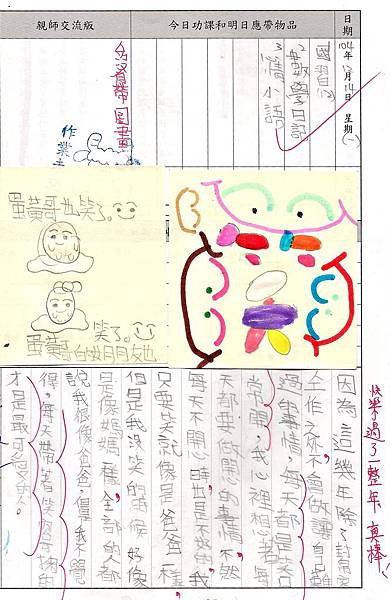 日期
104年12月14日 星期(一)
今日功課和明日應帶物品
親師交流版
2數學日記
小語
帶圖畫
作業
蛋黃哥也笑了。
笑了。
蛋黃哥的女朋友也
快樂過了一整年,真棒!
因為這幾年除了討厭
工作之外,不會做讓自己難
過的事情,每天都是笑口
常開,我心裡想著每
天都要做開心的事情,不然
每天不開心時,也是 的我
只要笑就像是爸爸一樣,
但是我沒笑的時候好像
是像媽媽一樣,全部的人都
說我很像爸爸,但是我不覺
得,每天帶著笑容 的
才是最可愛的人。